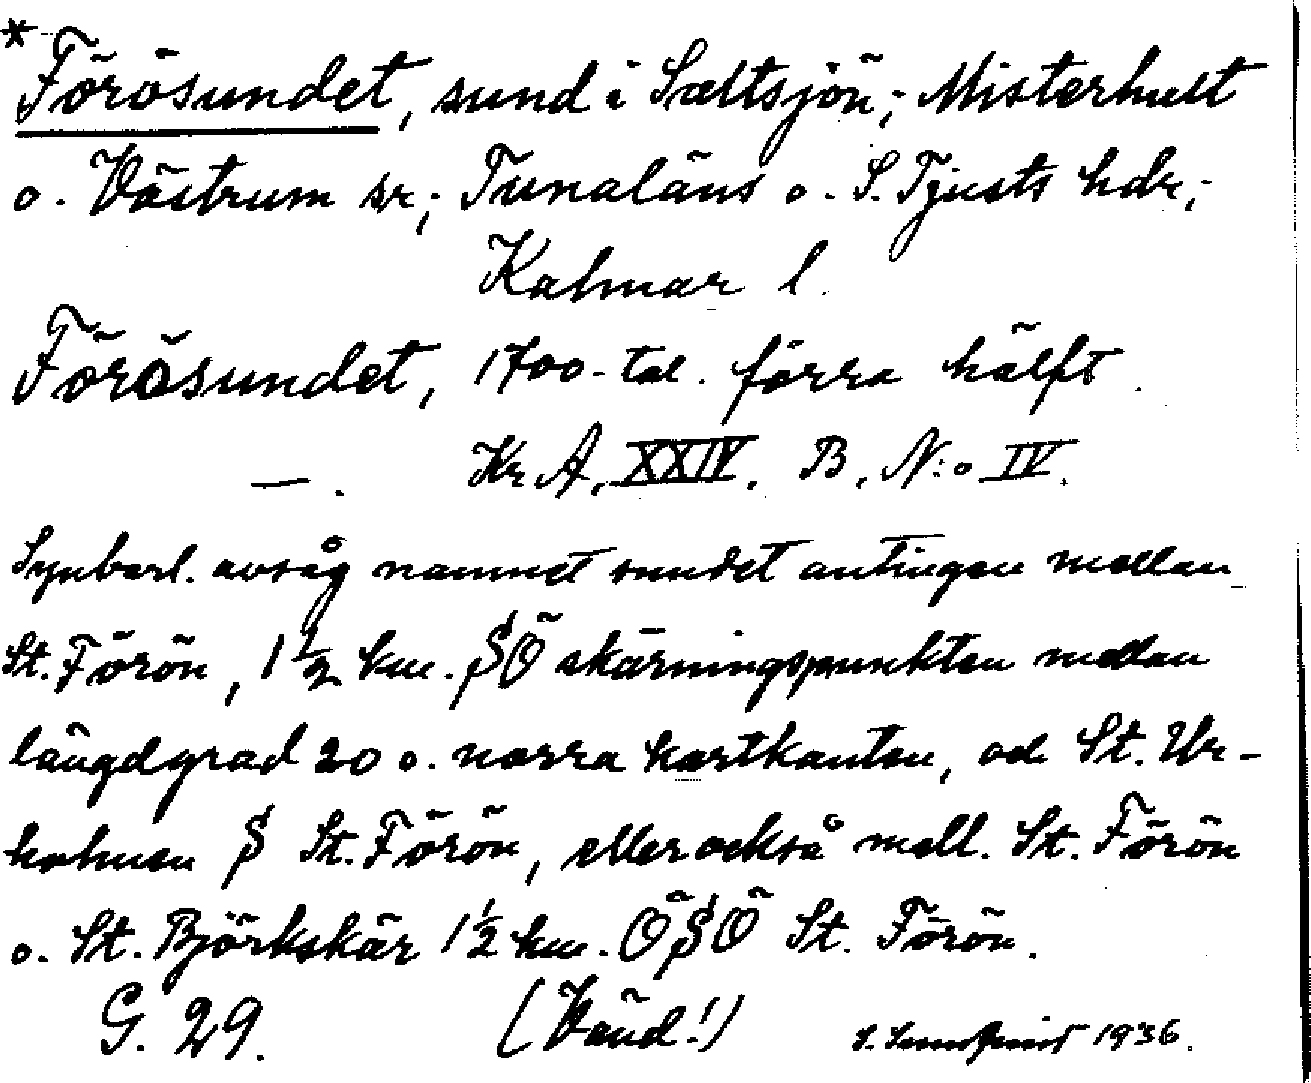 * Förösundet, sund i Saltsjön; Misterhult
o. Västrum sr; Tunaläns o. S. Tjusts hdr;
Kalmar l.
Förösundet, 1700-tal. förra hälft.
—. Kr A, XXIV. B. N:o IV.
Synbarl. avsåg namnet sundet antingen mellan
St. Förön, 1 1/2 km. SÖ skärningspunkten mellan
längdgrad 20 o. norra kartkanten, och St. Ur-
holmen S St. Förön, eller också mell. St. Förön
o. St. Björkskär 1 1/2 km. ÖSÖ St. Förön.
G. 29. (Vänd!) 1936.